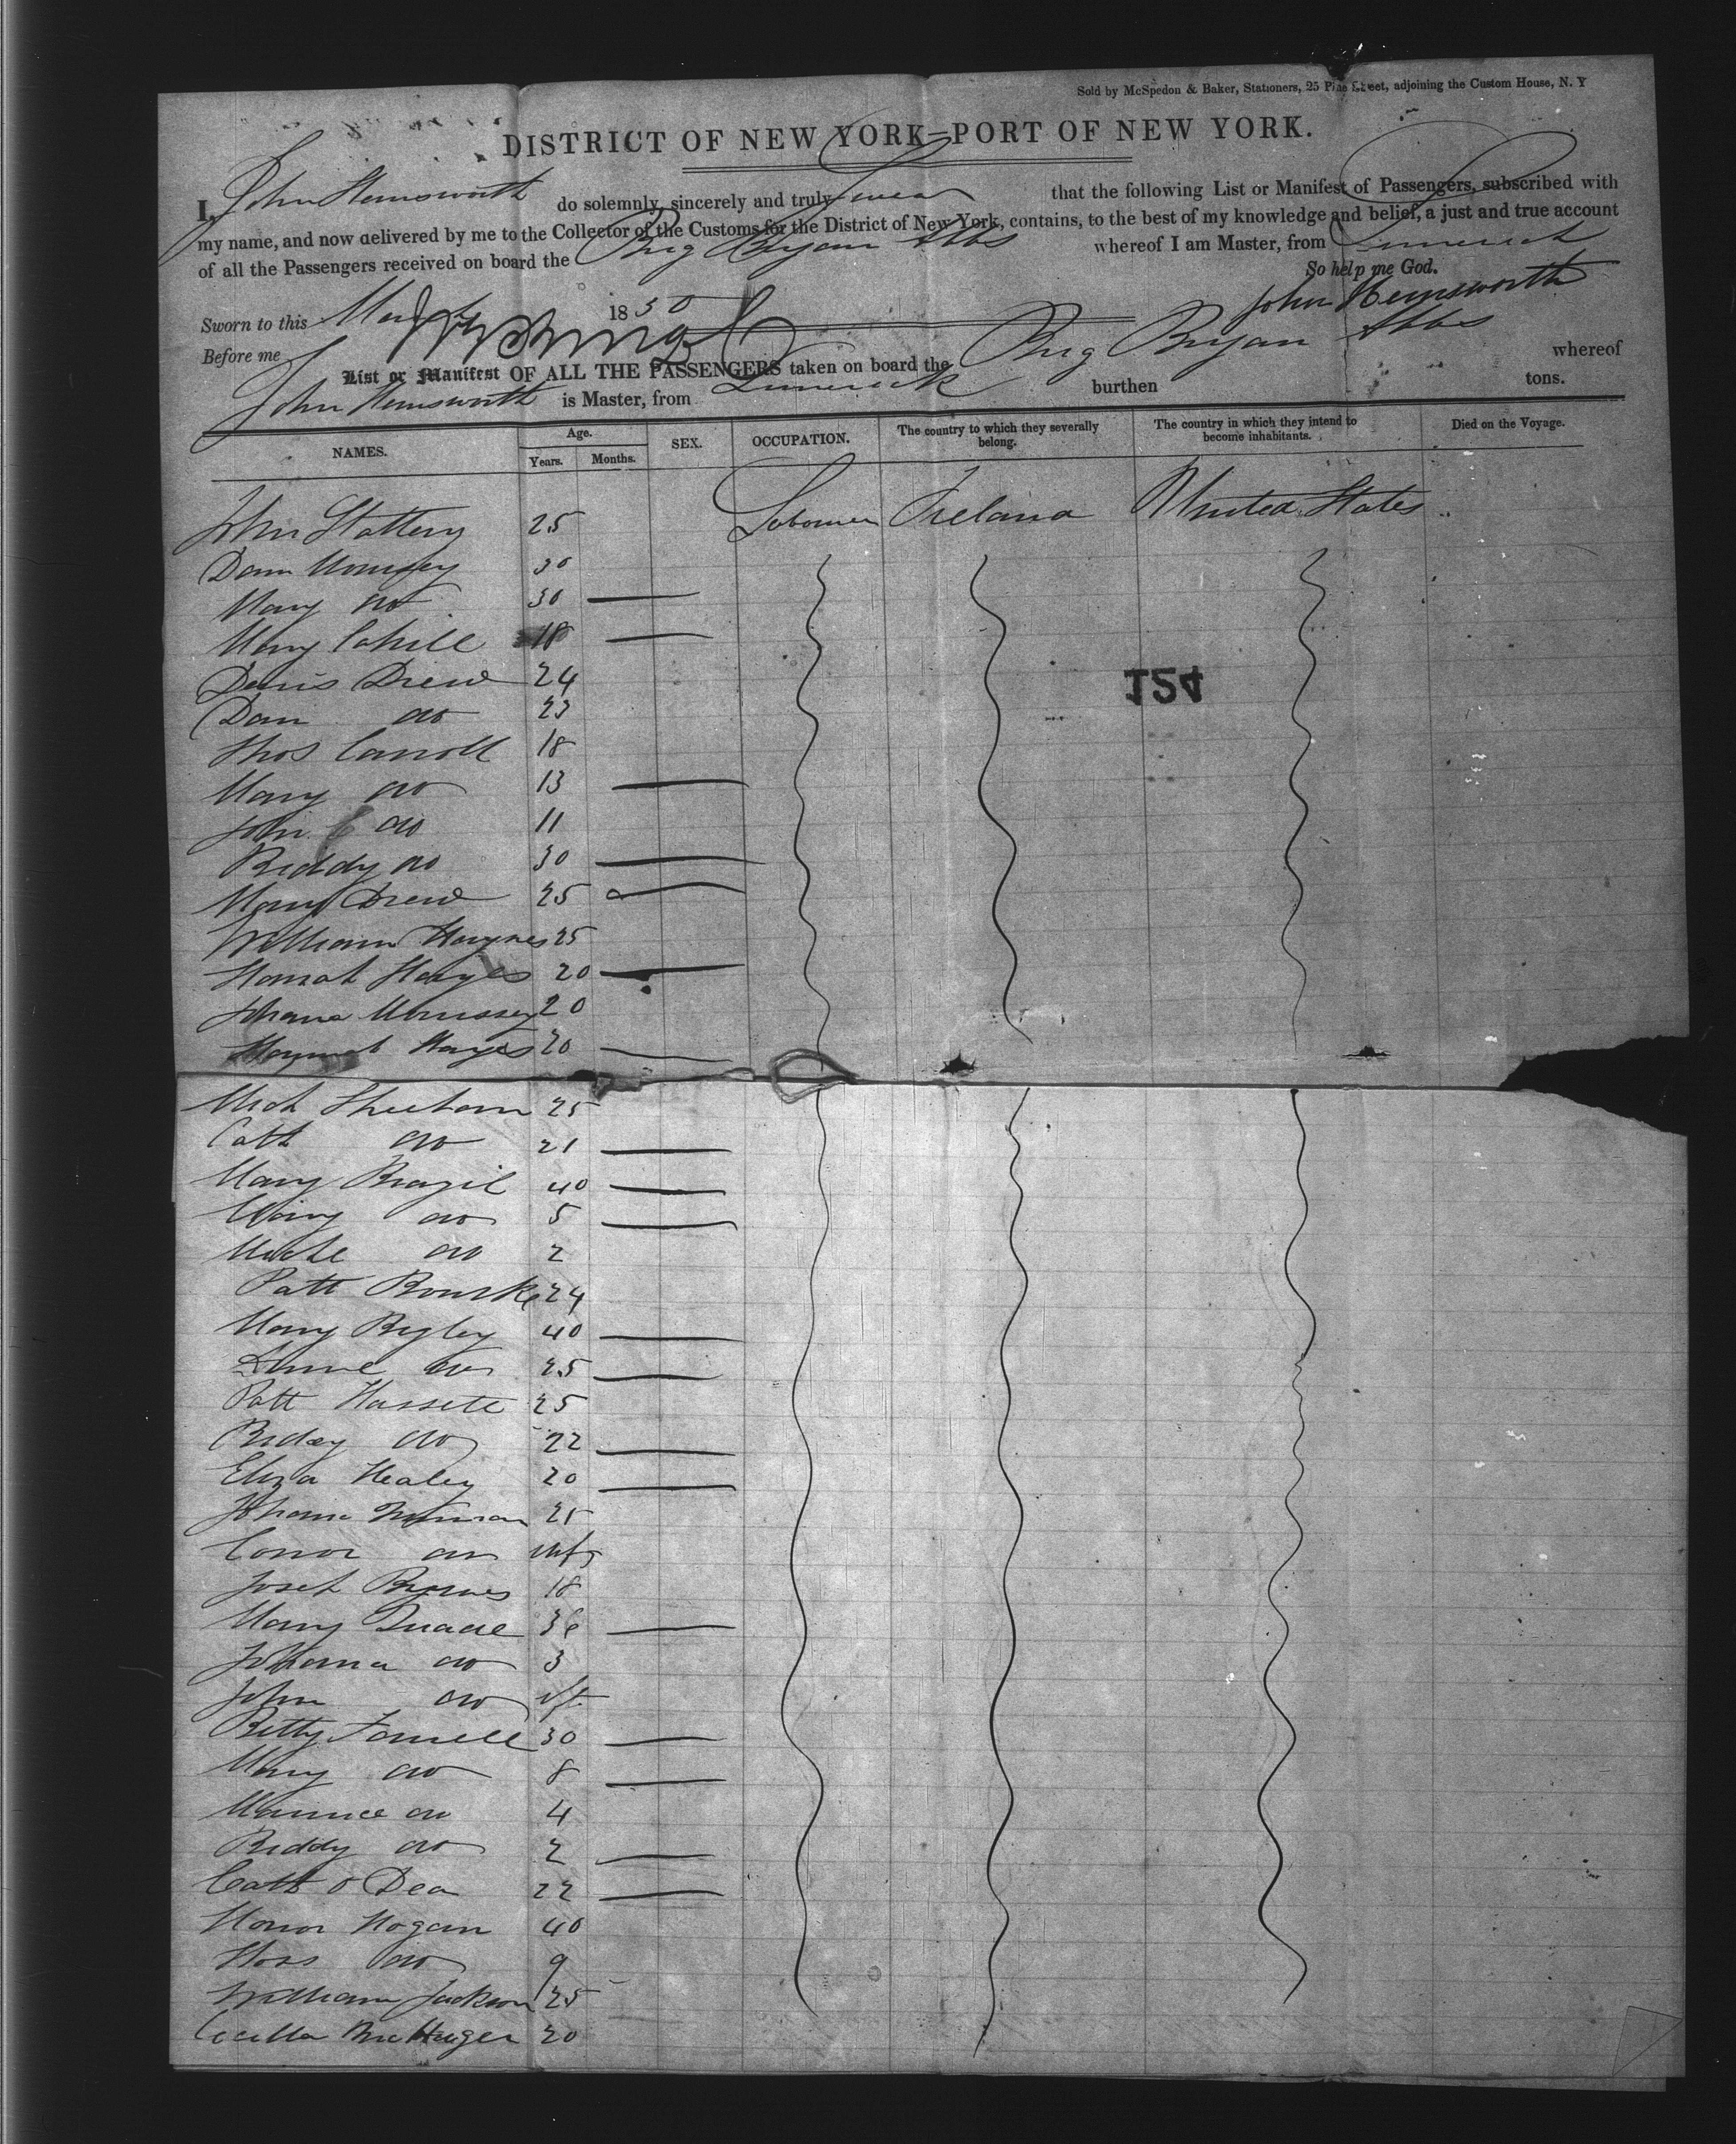 Sold by McSpedon & Baker, Stationers, 25 Pine Street, adjoining the Custom House, N. Y
DISTRICT OF NEW YORK—PORT OF NEW YORK.
I, John Hemsworth do solemnly, sincerely and truly Swear that the following List or Manifest of Passengers, subscribed with
my name, and now delivered by me to the Collector of the Customs for the District of New York, contains, to the best of my knowledge and belief, a just and true account
of all the Passengers received on board the Brig Bryan Abbs whereof I am Master, from Limerick
So help me God.
Sworn to this 1850 John Hemsworth
Before me
List or Manifest OF ALL THE PASSENGERS taken on board the Brig Bryan Abbs whereof
John Hemsworth is Master, from Limerick burthen tons.
NAMES. Age. Years. Months. SEX. OCCUPATION. The country to which they severally belong. The country in which they intend to become inhabitants. Died on the Voyage.
John Slattery 25 Labourer Ireland United States
Dan 30
Mary do 30
Mary Cahill 18
Denis Drew 24
Dan do 23
Thos Carroll 18
Mary do 13
John do 11
Biddy do 30
Mary Drew 25
William Haynes 25
Honrah Hayes 20
Johana 20
Hayes 20
124
Mich Sheehan 25
Cath do 21
Mary Brazil 40
Mary do 5
Michl do 2
Patt Bourke 24
Mary Begley 40
do 25
Patt Hassett 25
Bridgy do 22
Eliza Healey 20
Johana 25
Conor do inft
Joseh Byrnes 18
Mary Quade 36
Johanna do 3
John do ift
Betty Farrell 30
Mary do 8
Maurice do 4
Biddy do 2
Cath O Dea 22
Honor Hogan 40
Thos do 9
William Jackson 25
Cecilla 20